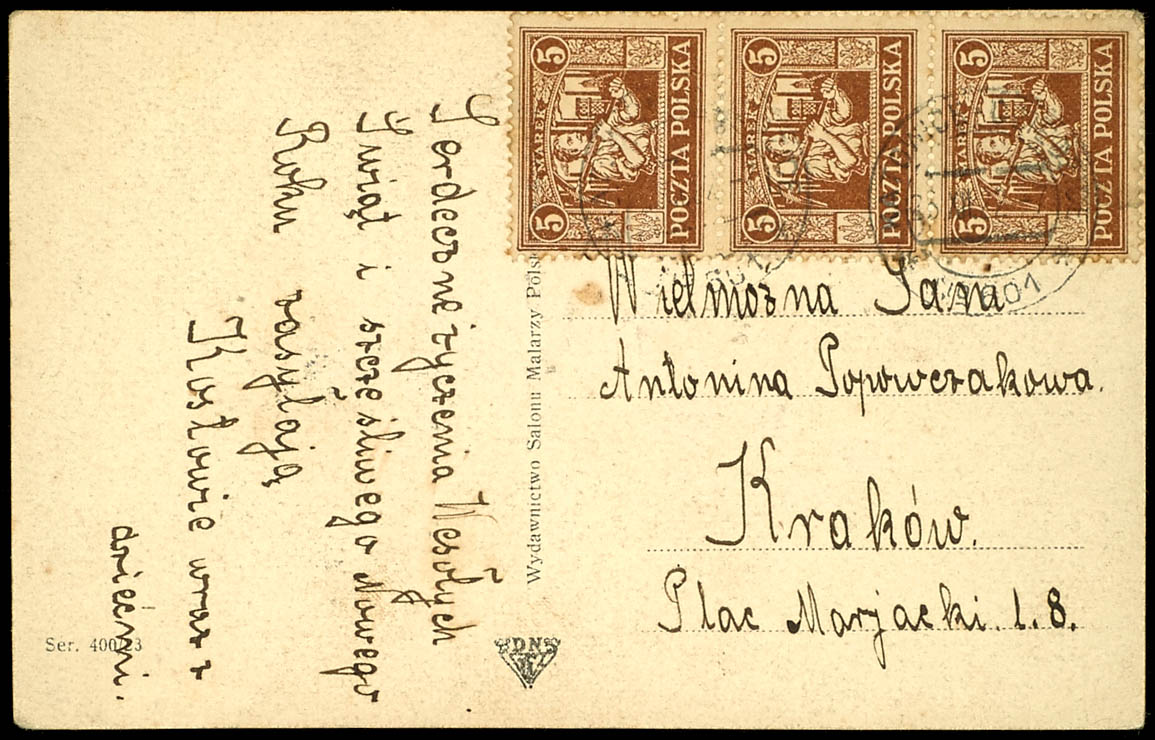 Serdeczne życzenia Wesołych
Świąt i szczęśliwego Nowego
Roku zasyłają
Kostowie wraz z
dziećmi.
Ser. 400/23
Wydawnictwo Salonu Malarzy Polsk
DN
5 MAREK 5
POCZTA POLSKA
5 MAREK 5
POCZTA POLSKA
5 MAREK 5
POCZTA POLSKA
Wielmożna Pana
Antonina Popowczakowa.
Kraków.
Plac Marjacki l. 8.